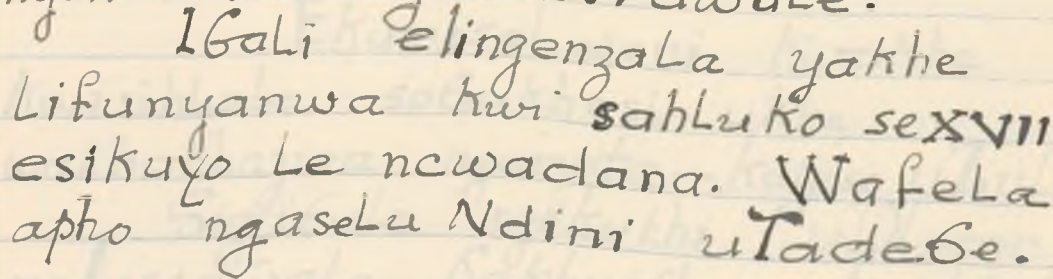 IGali elingenzala yakhe
Lifunyanwa kwi sahluko seXVII
esikuyo Le ncwadana. Wafela
apho ngaseLu Ndini uTadeɓe.